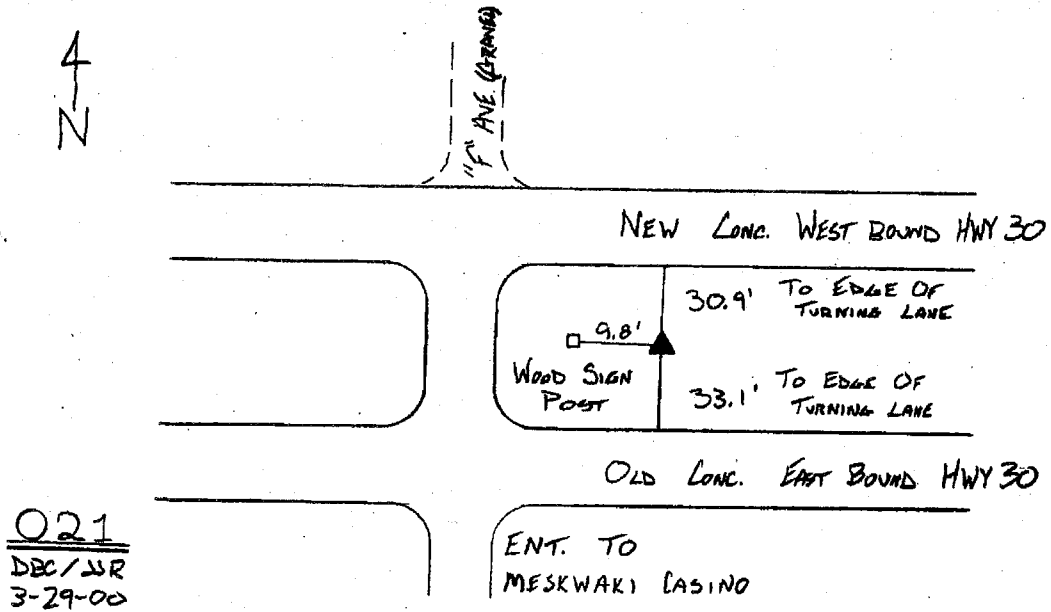 N
"F" AVE. (GRAVEL)
NEW CONC. WEST BOUND HWY 30
30.9' TO EDGE OF
TURNING LANE
9.8'
WOOD SIGN
POST
33.1' TO EDGE OF
TURNING LANE
OLD CONC. EAST BOUND HWY 30
ENT. TO
MESKWAKI CASINO
021
DBC/JJR
3-29-00